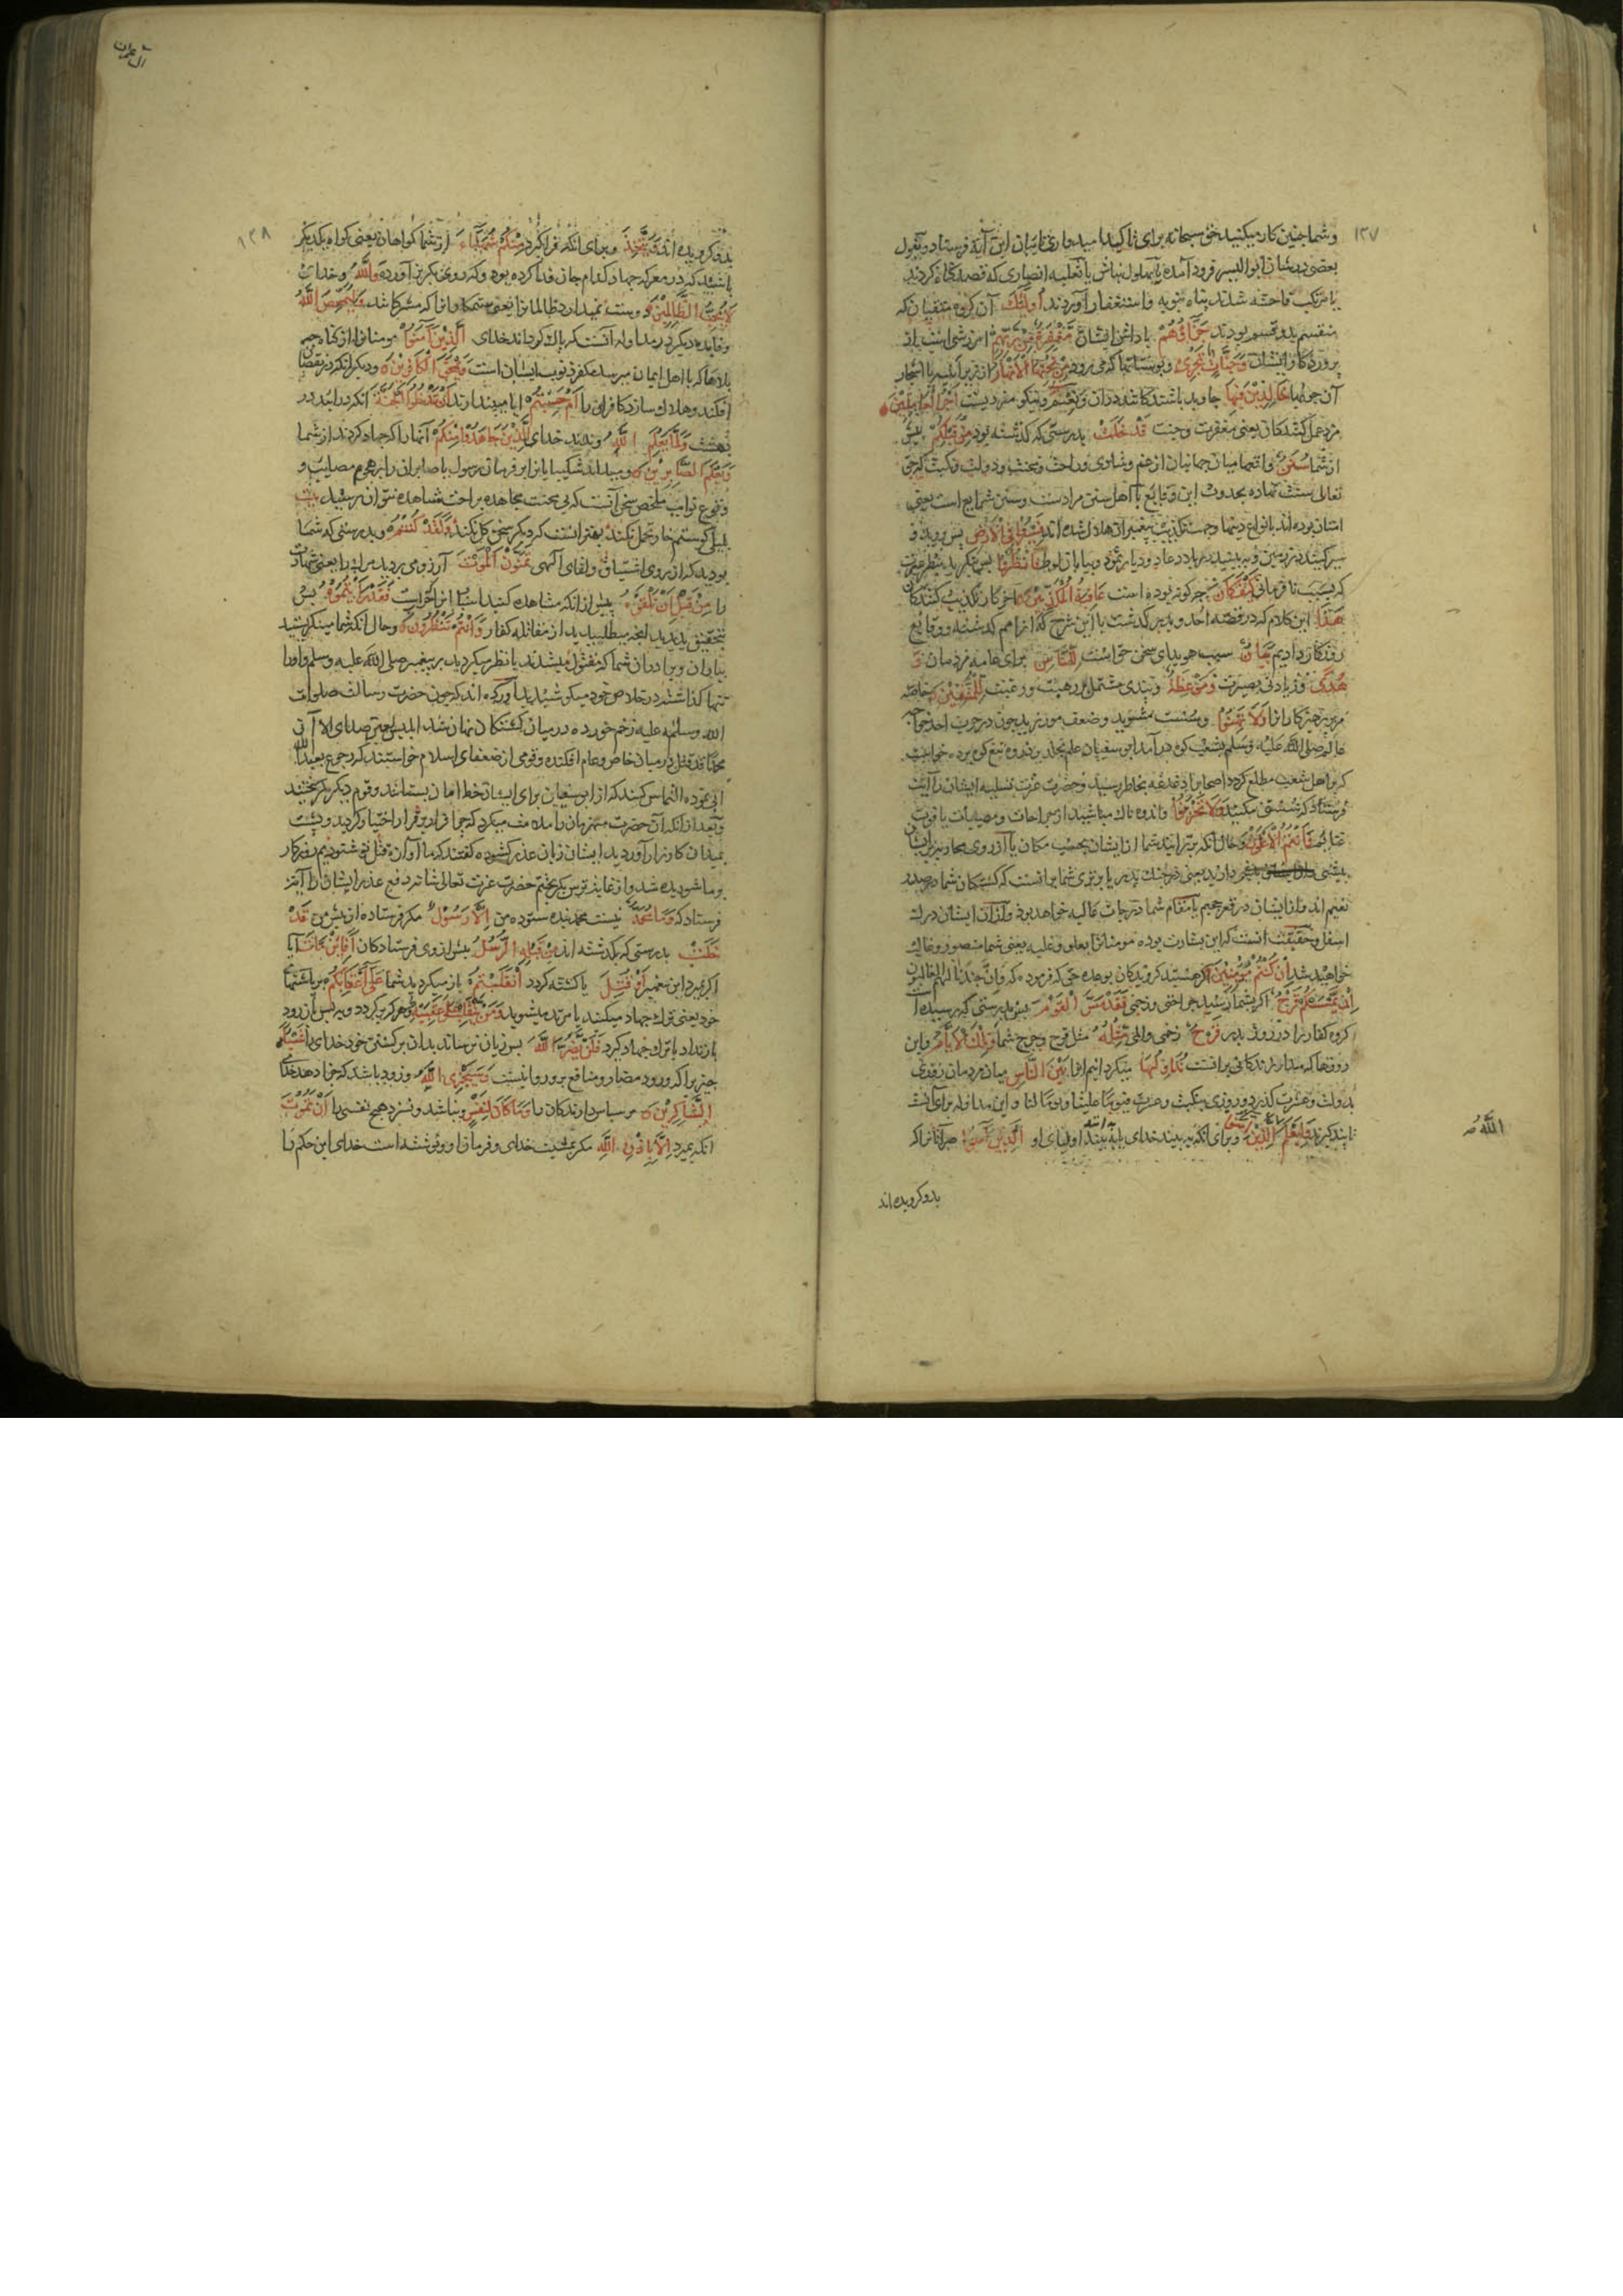 ۱۲۷
وشما چنین کار میکنید حق سبحانه برای تاکید امیدواری تایبان این آیة فرستاد و بقول
بعضی در شان ابو الیسر فرود آمده یا بهلول نباش یا ثعلبه انصاری که قصد گناه کردند
یا مرتکب فاحشه شدند پناه بتوبه و استغفار آوردند أُولَئِكَ آن گروه متقیان که
منقسم بدو قسم بودند جَزَاؤُهُمْ پاداش ایشان مَغْفِرَةٌ مِنْ رَبِّهِمْ امرزشی است از
پروردگار ایشان وَجَنَّاتٌ تَجْرِي وبوستانها که می رود مِنْ تَحْتِهَا الْأَنْهَارُ از زیر ابنیه یا اشجار
آن جویها خَالِدِينَ فِيهَا جاوید باشندگان در آن وَنِعْمَ ونیکو مزدیست أَجْرُ الْعَامِلِينَ
مزد عمل کنندگان یعنی مغفرت وجنت قَدْ خَلَتْ بدرستی که گذشته بود مِنْ قَبْلِكُمْ پیش
از شما سُنَنٌ واقعها میان جهانیان از غم وشادی وراحت ومحنت ودولت ونکبت که حق
تعالی سنت نهاده بحدوث این وقایع یا اهل سنن مرادست وسنن شرایع است یعنی
امتان بوده اند بانواع دینها وجهت تکذیب پیغمبران هلاک شده اند فَسِيرُوا فِي الْأَرْضِ پس روید و
سیر کنید در زمین وببینید در بلاد عاد ودیار ثمود وبیابان لوط فَانْظُرُوا پس بنگرید بنظر عبرت
که بسبب نافرمانی كَيْفَ كَانَ چه گونه بوده است عَاقِبَةُ الْمُكَذِّبِينَ آخر کار تکذیب کنندگان
هَذَا این کلام که در قصه احد وبدر گذشت یا این شرح که از امم گذشته ووقایع
روزگار دادیم بَيَانٌ سبب هویدای سخن حق است لِلنَّاسِ برای عامه مردمان وَ
هُدًى وزیادتی بصیرت وَمَوْعِظَةٌ وپندی مشتمل بر رهبت ورغبت لِلْمُتَّقِينَ خاصه
مر پرهیزکاران را وَلَا تَهِنُوا وسست مشوید وضعف مورزید چون در حرب احد خواجه
عالم صلی الله علیه وسلم بشعب کوه در آمد ابو سفیان
که بر اهل شعب مطلع گردد اصحاب را دغدغه بخاطر رسید وحضرت عزت بتسلیه ایشان را آیت
فرستاد که سستی مکنید وَلَا تَحْزَنُوا واندوه ناک مباشید از جراحات ومصیبات یا فوت
غنایم وَأَنْتُمُ الْأَعْلَوْنَ وحال آنکه برترانید شما از ایشان بحسب مکان یا آرزوی محاربه بر ایشان
بیشی دارید یعنی در جنک بدر یا برتری شما برانست که کشتکان شما در صدر
نعیم اند واز ایشان در قعر جحیم یا مقام شما درجات عالیه خواهد بود واز آن ایشان درکه
اسفل وحقیقت آنست که این بشارت بوده مومنانرا بعلو وغلبه یعنی شما منصور وغالب
خواهید شد إِنْ كُنْتُمْ مُؤْمِنِينَ اگر هستید گرویدگان بوعده حق که فرموده که وان جندنا لهم الغالبون
إِنْ يَمْسَسْكُمْ قَرْحٌ اگر بشما رسید جراحتی وزخمی فَقَدْ مَسَّ الْقَوْمَ پس بدرستی که رسیده است
کروه کفار را در روز بدر قَرْحٌ زخمی والمی مِثْلُهُ مثل قرح وجرح شما وَتِلْكَ الْأَيَّامُ واین
روزها که مدار زندکانی برانست نُدَاوِلُهَا میکردانیم انرا بَيْنَ النَّاسِ میان مردمان روزی
بدولت وعشرت کذرد وروزی بنکبت وعسرت فیوما علینا ویوما لنا واین مداوله برای آنست
تا پند کیرند وَلِيَعْلَمَ اللَّهُ الَّذِينَ وبرای آنکه ببیند خدای یا بداند اولیای او الَّذِينَ آمَنُوا مر آنانرا که
الله
بدو کرویده اند
آل عمران
۱۲۸
بدو کرویده اند وَيَتَّخِذَ وبرای انکه فرا کیرد مِنْكُمْ شُهَدَاءَ از شما کواهان یعنی کواه یکدیگر
باشید که در معرکه جهاد کدام جان فدا کرده بود وکه روی بکریز آورده وَاللَّهُ وخدای
لَا يُحِبُّ الظَّالِمِينَ دوست نمیدارد ظالمان را یعنی ستمکارانرا که مشرکانند وَلِيُمَحِّصَ اللَّهُ
وفایده دیگر در مداوله آنست که پاک کرداند خدای الَّذِينَ آمَنُوا مومنانرا از کناه چه
بلاها که باهل ایمان میرسد مکفر ذنوب ایشان است وَيَمْحَقَ الْكَافِرِينَ ودیگر آنکه در نقصان
افکند وهلاک سازد کافران را أَمْ حَسِبْتُمْ ایا میپندارید أَنْ تَدْخُلُوا الْجَنَّةَ آنکه درآیید در
بهشت وَلَمَّا يَعْلَمِ اللَّهُ وندید خدای الَّذِينَ جَاهَدُوا مِنْكُمْ آنها را که جهاد کردند از شما
وَيَعْلَمَ الصَّابِرِينَ
وقوع نوایب ملخص سخن آنست که بی محنت مجاهده براحت مشاهده نتوان رسید بیت
بلبلی کو ستم خار تحمل نکند بهتر آنست که دیگر سخن کل نکند وَلَقَدْ كُنْتُمْ وبدرستی که شما
بودید که از روی اشتیاق ولقای الهی تَمَنَّوْنَ الْمَوْتَ آرزو می بردید مرک را یعنی شهادت
را مِنْ قَبْلِ أَنْ تَلْقَوْهُ پیش از انکه مشاهده کنید اسباب انرا فَقَدْ رَأَيْتُمُوهُ پس
بتحقیق بدیدید انچه میطلبیدید از مقاتله کفار وَأَنْتُمْ تَنْظُرُونَ وحال انکه شما مینگریستید
بیاران وبرادران شما که مقتول میشدند یا نظر میکردید بر پیغمبر صلی الله علیه وسلم واورا
تنها کذاشته در خلاص خود میکوشیدید آورده اند که چون حضرت رسالت صلوات
الله وسلمه علیه زخم خورده در میان کشتکان نهان شد ابلیس لعین صدای الا ان
محمدا قد قتل در میان خاص وعام افکنده وقومی از ضعفای اسلام خواستند که رجوع بعبدالله
ابی نموده التماس کنند که از ابو سفیان برای ایشان خط امان بستاند وقوم دیگر بگریختند
وبعد از انکه آن حضرت منهزمان را ملامت میکرد که چرا فرار بر قرار اختیار کردید وپشت
بمیدان کارزار آوردید ایشان زبان عذر کشوده کفتند که ما آوازه قتل تو شنودیم روزکار
بر ما شوریده شد واز غایت ترس بگریختیم حضرت عزت تعالی شانه در دفع عذر ایشان را آیت
فرستاد که وَمَا مُحَمَّدٌ نیست محمد بنده ستوده من إِلَّا رَسُولٌ مکر فرستاده از پیش من قَدْ
خَلَتْ بدرستی که بگذشته اند مِنْ قَبْلِهِ الرُّسُلُ پیش از وی فرستادکان أَفَإِنْ مَاتَ آیا
اگر بمیرد این پیغمبر أَوْ قُتِلَ یا کشته کردد انْقَلَبْتُمْ باز میکردید شما عَلَى أَعْقَابِكُمْ بر پاشنهای
خود یعنی ترک جهاد میکنید یا مرتد میشوید وَمَنْ يَنْقَلِبْ عَلَى عَقِبَيْهِ وهر که برکردد وبر پس باز رود
بارتداد یا ترک جهاد کیرد فَلَنْ يَضُرَّ اللَّهَ پس زیان نرساند بدان برکشتن خود خدای را شَيْئًا
چیزی را که ورود مضار ومنافع برو روا نیست وَسَيَجْزِي اللَّهُ وزود باشد که جزا دهد خدای
الشَّاكِرِينَ مر سپاس دارندکان را وَمَا كَانَ لِنَفْسٍ ونباشد ونسزد هیچ نفسی را أَنْ تَمُوتَ
انکه بمیرد إِلَّا بِإِذْنِ اللَّهِ مکر بمشیت خدای وفرمان او ونوشته است خدای این حکم را